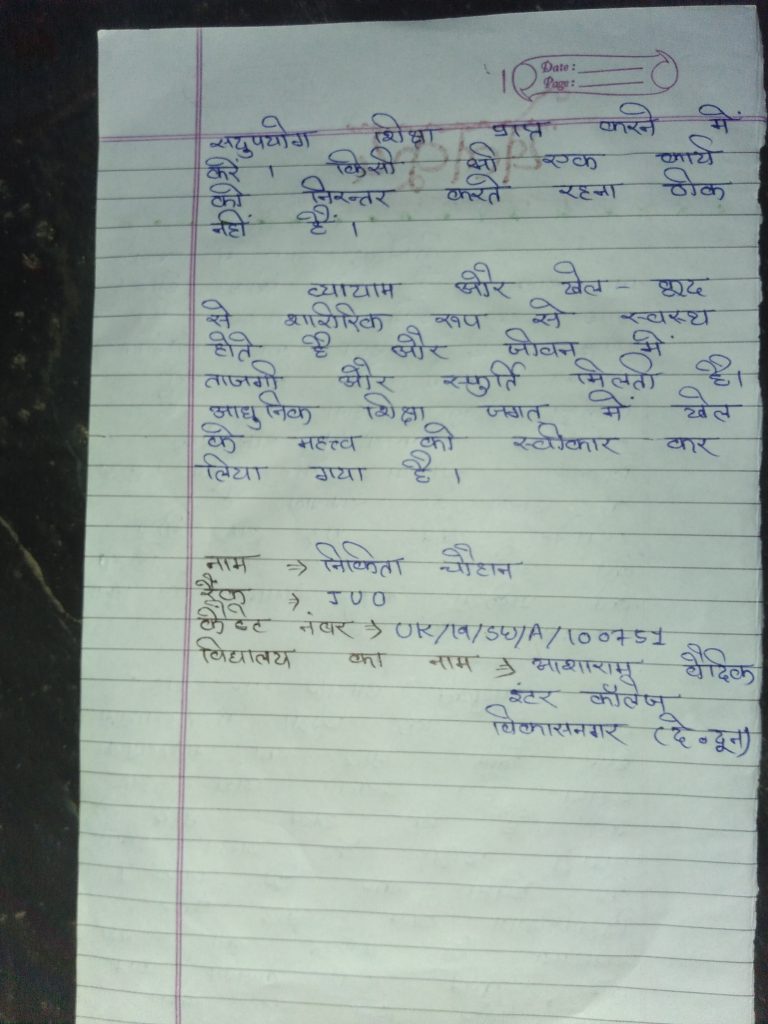 Date :
Page :
सदुपयोग शिक्षा प्राप्त करने में
करें । किसी भी एक कार्य
को निरन्तर करते रहना ठीक
नहीं हैं ।
व्यायाम और खेल - कूद
से शारीरिक रूप से स्वस्थ
होते है और जीवन में
ताजगी और स्फुर्ति मिलती है।
आधुनिक शिक्षा जगत में खेल
के महत्व को स्वीकार कर
लिया गया है ।
नाम ⇒ निकिता चौहान
रैंक ⇒ JUO
कैडेट नंबर ⇒ UK/19/SW/A/100751
विद्यालय का नाम ⇒ आशाराम वैदिक
इंटर कॉलेज
विकासनगर (दे॰दून)